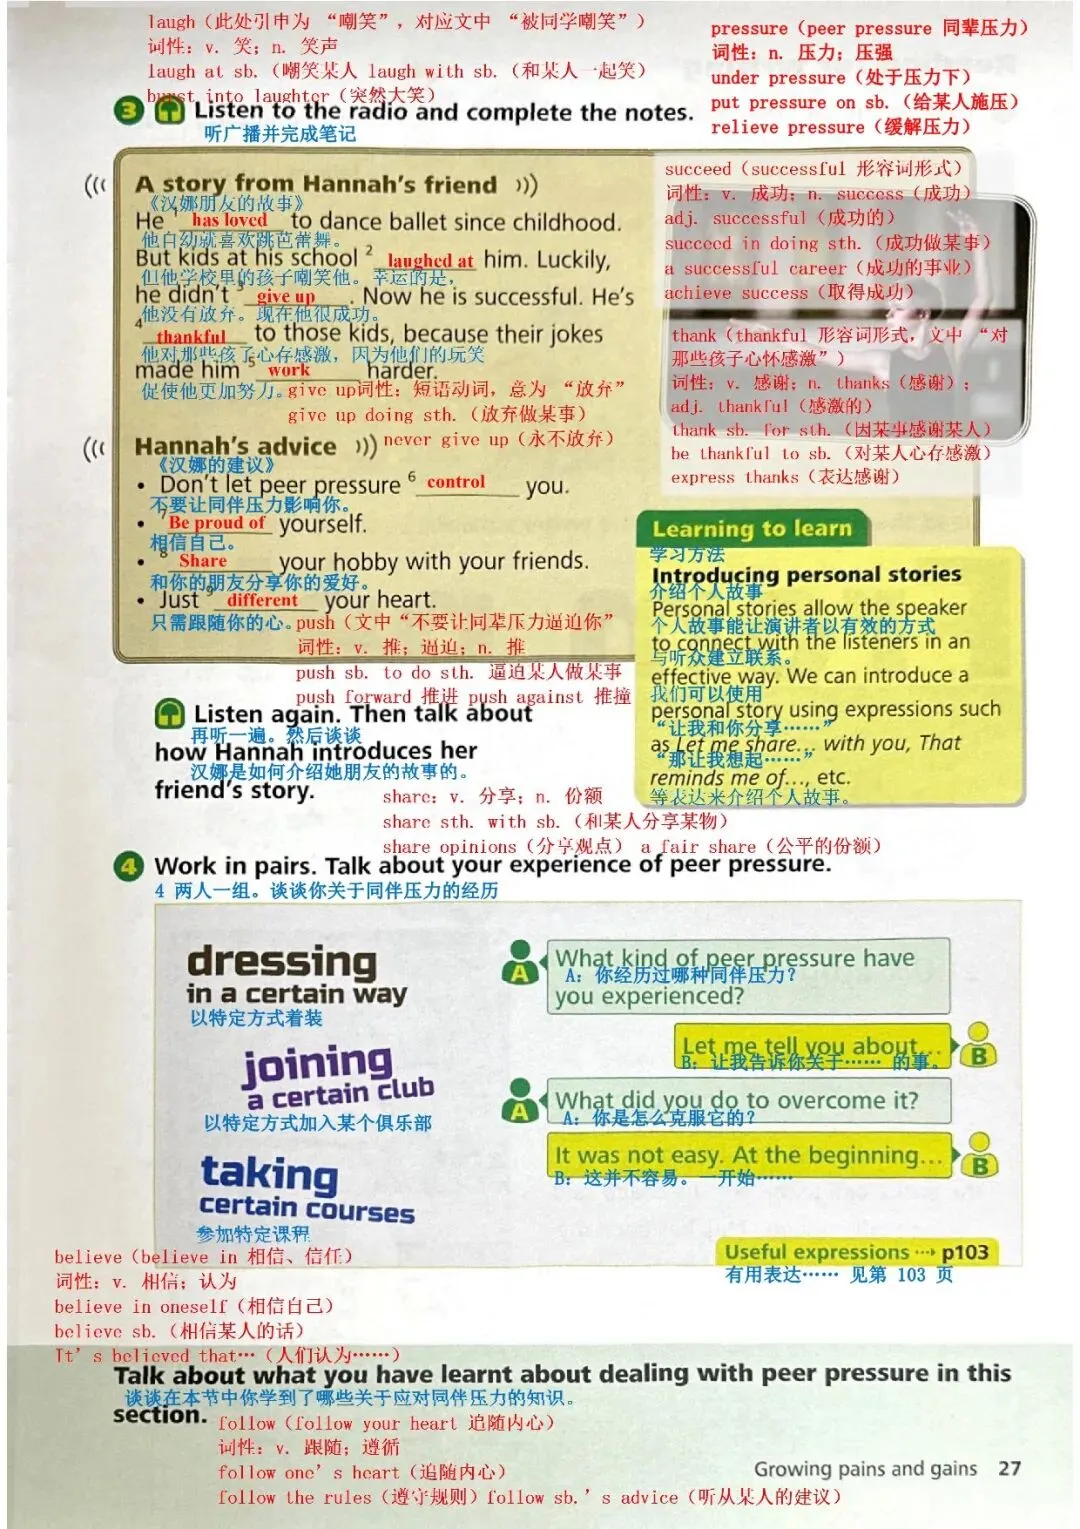 laugh（此处引申为 “嘲笑”，对应文中 “被同学嘲笑”）
词性：v. 笑；n. 笑声
laugh at sb.（嘲笑某人 laugh with sb.（和某人一起笑）
burst into laughter（突然大笑）
pressure（peer pressure 同辈压力）
词性：n. 压力；压强
under pressure（处于压力下）
put pressure on sb.（给某人施压）
relieve pressure（缓解压力）
3 Listen to the radio and complete the notes.
听广播并完成笔记
A story from Hannah's friend
《汉娜朋友的故事》
He 1 has loved to dance ballet since childhood.
他自幼就喜欢跳芭蕾舞。
But kids at his school 2 laughed at him. Luckily,
但他学校里的孩子嘲笑他。幸运的是，
he didn't 3 give up. Now he is successful. He's
他没有放弃。现在他很成功。
4 thankful to those kids, because their jokes
他对那些孩子心存感激，因为他们的玩笑
made him 5 work harder.
促使他更加努力。
give up词性：短语动词，意为 “放弃”
give up doing sth.（放弃做某事）
never give up（永不放弃）
succeed（successful 形容词形式）
词性：v. 成功；n. success（成功）
adj. successful（成功的）
succeed in doing sth.（成功做某事）
a successful career（成功的事业）
achieve success（取得成功）
thank（thankful 形容词形式，文中 “对
那些孩子心怀感激”）
词性：v. 感谢；n. thanks（感谢）；
adj. thankful（感激的）
thank sb. for sth.（因某事感谢某人）
be thankful to sb.（对某人心存感激）
express thanks（表达感谢）
Hannah's advice
《汉娜的建议》
• Don't let peer pressure 6 control you.
不要让同伴压力影响你。
• 7 Be proud of yourself.
相信自己。
• 8 Share your hobby with your friends.
和你的朋友分享你的爱好。
• Just 9 different your heart.
只需跟随你的心。
push（文中“不要让同辈压力逼迫你”
词性：v. 推；逼迫；n. 推
push sb. to do sth. 逼迫某人做某事
push forward 推进 push against 推撞
Learning to learn
学习方法
Introducing personal stories
介绍个人故事
Personal stories allow the speaker
个人故事能让演讲者以有效的方式
to connect with the listeners in an
与听众建立联系。
effective way. We can introduce a
我们可以使用
personal story using expressions such
“让我和你分享……”
as Let me share... with you, That
“那让我想起……”
reminds me of..., etc.
等表达来介绍个人故事。
Listen again. Then talk about
再听一遍。然后谈谈
how Hannah introduces her
汉娜是如何介绍她朋友的故事的。
friend's story.
share：v. 分享；n. 份额
share sth. with sb.（和某人分享某物）
share opinions（分享观点） a fair share（公平的份额）
4 Work in pairs. Talk about your experience of peer pressure.
4 两人一组。谈谈你关于同伴压力的经历
dressing
in a certain way
以特定方式着装
joining
a certain club
以特定方式加入某个俱乐部
taking
certain courses
参加特定课程
A What kind of peer pressure have
A：你经历过哪种同伴压力？
you experienced?
Let me tell you about... B
B：让我告诉你关于…… 的事。
A What did you do to overcome it?
A：你是怎么克服它的？
It was not easy. At the beginning... B
B：这并不容易。一开始……
Useful expressions ⋯→ p103
有用表达…… 见第 103 页
believe（believe in 相信、信任）
词性：v. 相信；认为
believe in oneself（相信自己）
believe sb.（相信某人的话）
It's believed that…（人们认为……）
Talk about what you have learnt about dealing with peer pressure in this
谈谈在本节中你学到了哪些关于应对同伴压力的知识。
section.
follow（follow your heart 追随内心）
词性：v. 跟随；遵循
follow one's heart（追随内心）
follow the rules（遵守规则）follow sb.'s advice（听从某人的建议）
Growing pains and gains 27